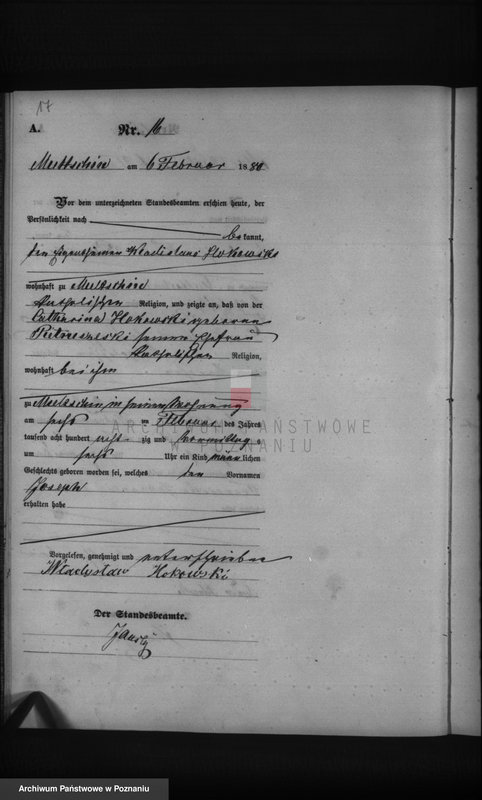 17
A.
Nr. 16
am 6 Februar 1880
Vor dem unterzeichneten Standesbeamten erschien heute, der
Persönlichkeit nach
bekannt,
der Eigenthümer Wladislaus Hokowski
wohnhaft zu
katholischer Religion, und zeigte an, daß von der
Catharina Hokowski geborene
seiner Ehefrau
katholischer Religion,
wohnhaft bei ihm
zu in seiner Wohnung
am sechs ten Februar des Jahres
tausend acht hundert acht zig und Vormittags
um sechs Uhr ein Kind männlichen
Geschlechts geboren worden sei, welches den Vornamen
Joseph
erhalten habe
Vorgelesen, genehmigt und unterschrieben
Wladyslaw Hokowski
Der Standesbeamte.
ARCHIWUM PAŃSTWOWE
W POZNANIU
Archiwum Państwowe w Poznaniu